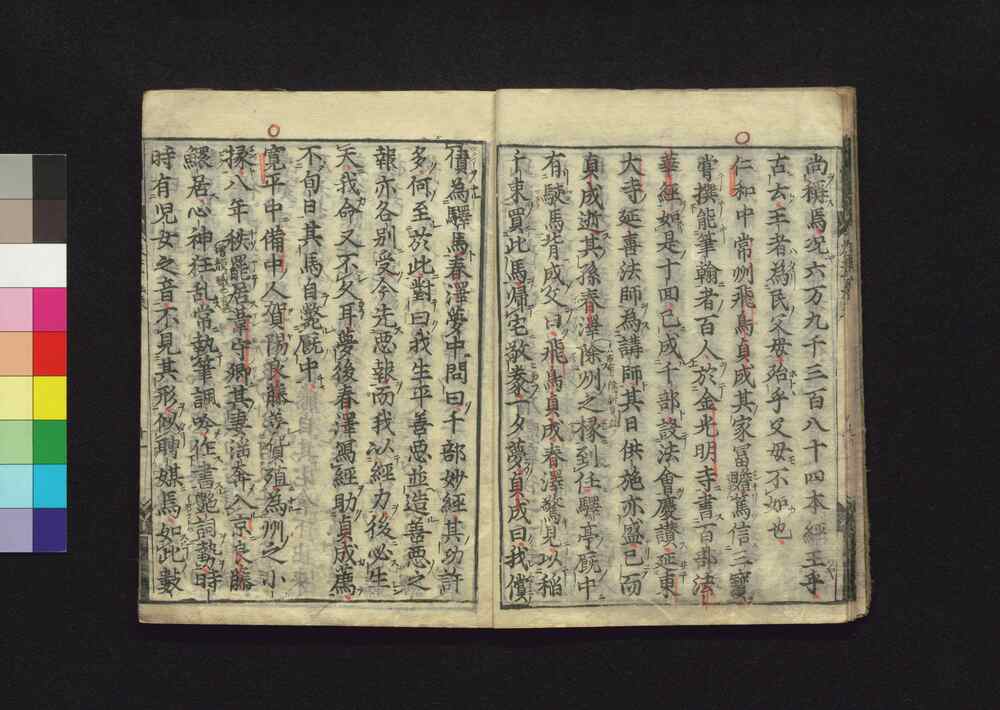 尚稱焉况六万九千三百八十四本經王乎
古云王者為民父母殆乎父母不如也
仁和中常州飛鳥貞成其家冨贍篤信三寳
甞撰能筆翰者百人於金光明寺書百部法
華經如是十回已成千部設法會慶讃延東
大寺延善法師為講師其日供施亦盛已而
貞成逝其孫春澤除州之掾到任驛亭厩中
有駃馬背成父曰飛鳥貞成春澤驚見以稲
千束買此馬歸宅敬養一夕夢貞成曰我償
債為驛馬春澤夢中問曰千部妙經其功許
多何至於此對曰我生平善悪並造善悪之
報亦各别受今先悪報而我以經力後必生
天我命又不久耳夢後春澤冩經助貞成薦
不旬日其馬自斃厩中
寛平中備中人賀陽良藤善貨殖為州之小
掾八年秩罷居葦守郷其妻淫奔入京良藤
鰥居心神狂乱常執筆諷吟作書艶詞勢時
時有児女之音不見其形似聘媒焉如此數